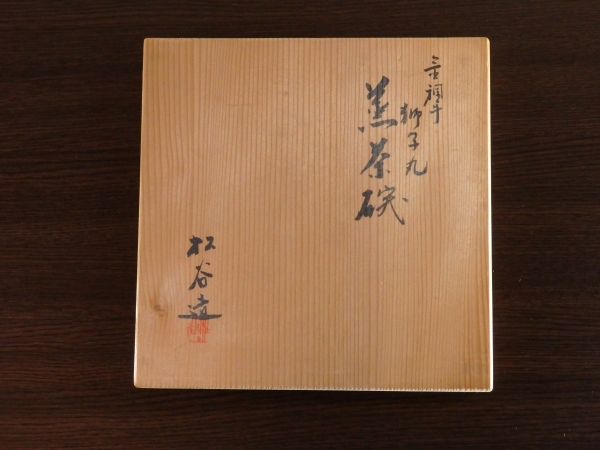 金襴手
獅子丸
蒸茶碗
松谷造